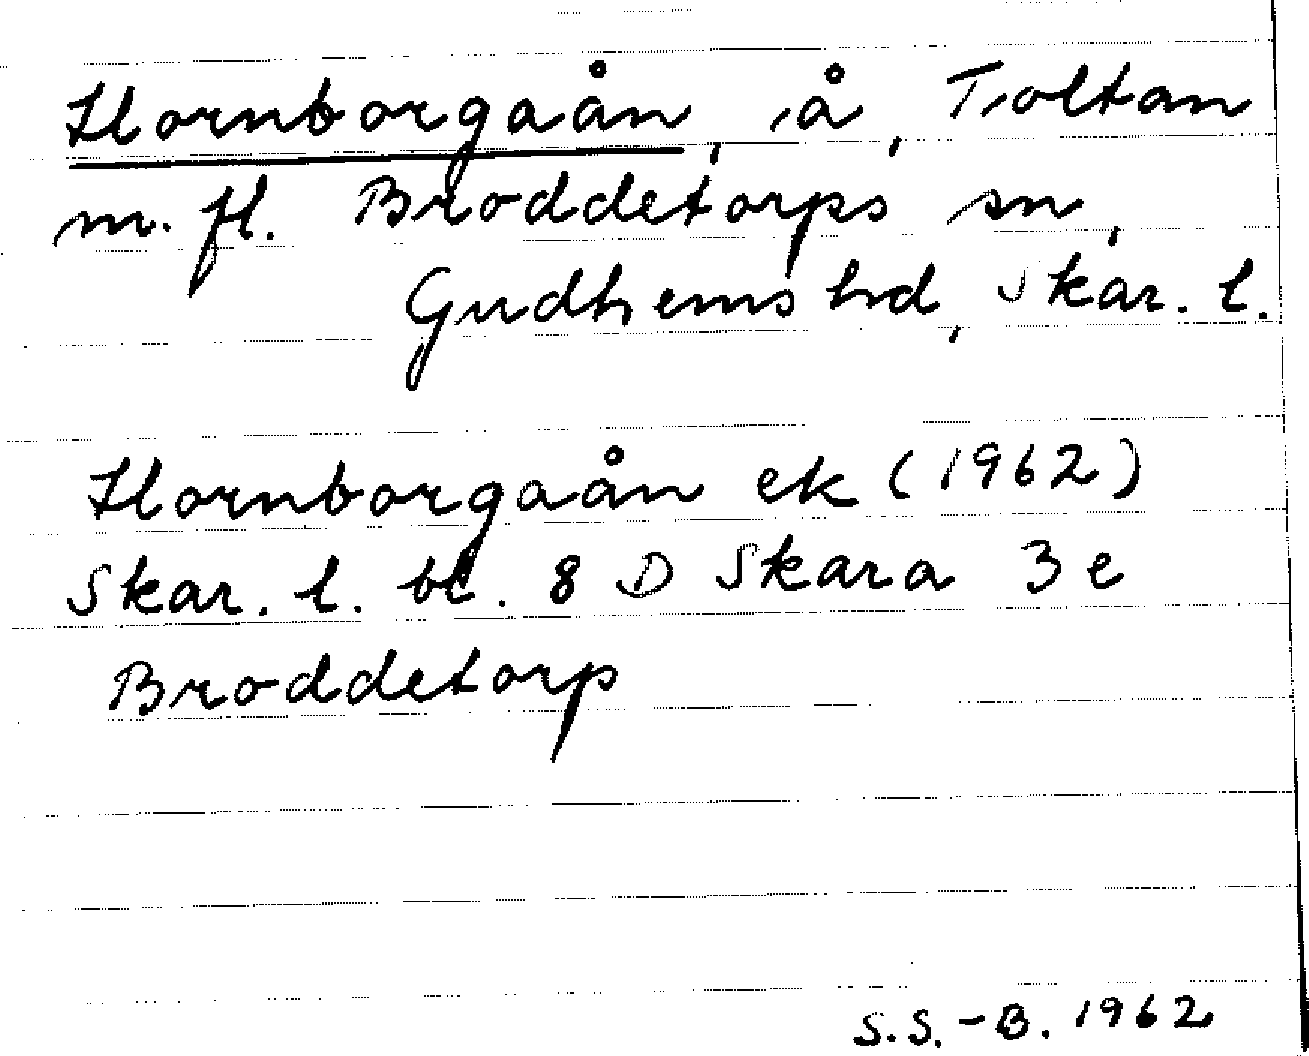 Hornborgaån, å, Toltan
m. fl. Broddetorps sn,
Gudhems hd, Skar. l.
Hornborgaån ek (1962)
Skar. l. bl. 8 D Skara 3 e
Broddetorp
S.S.-B. 1962